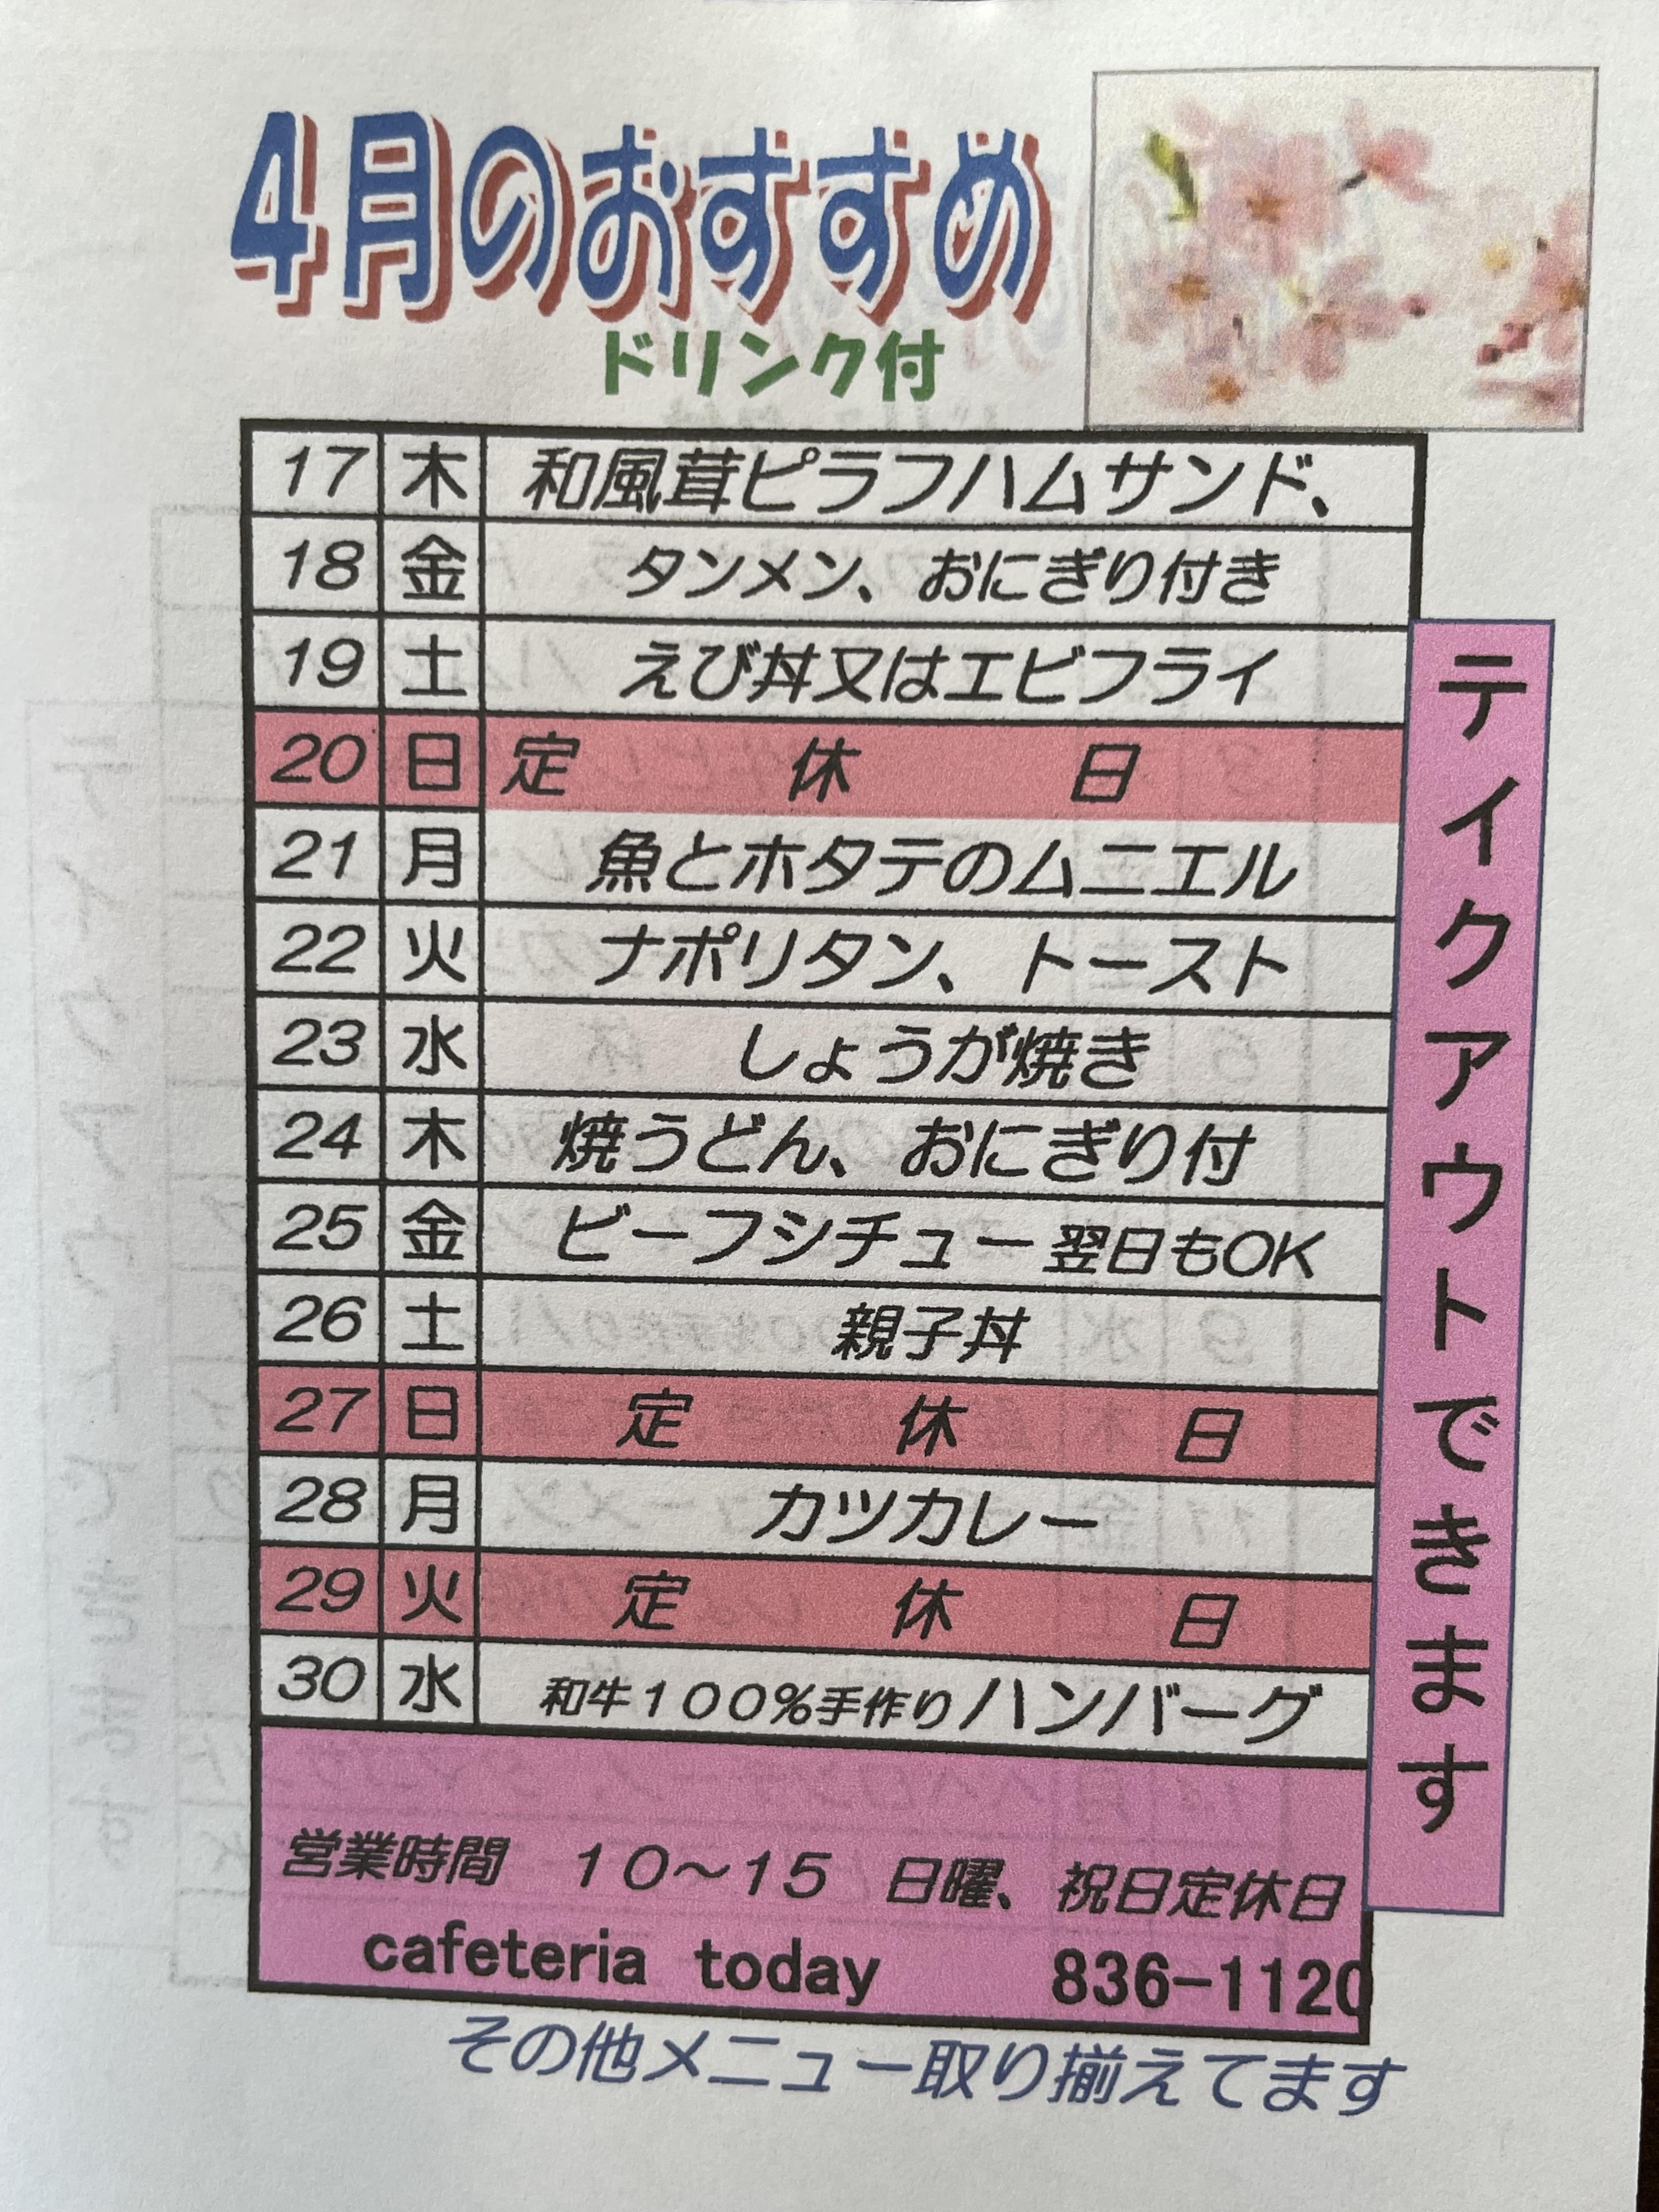 4月のおすすめ
ドリンク付
17 木 和風茸ピラフハムサンド、
18 金 タンメン、おにぎり付き
19 土 えび丼又はエビフライ
20 日 定 休 日
21 月 魚とホタテのムニエル
22 火 ナポリタン、トースト
23 水 しょうが焼き
24 木 焼うどん、おにぎり付
25 金 ビーフシチュー 翌日もOK
26 土 親子丼
27 日 定 休 日
28 月 カツカレー
29 火 定 休 日
30 水 和牛１００％手作りハンバーグ
テイクアウトできます
営業時間 １０～１５ 日曜、祝日定休日
cafeteria today 836-1120
その他メニュー取り揃えてます